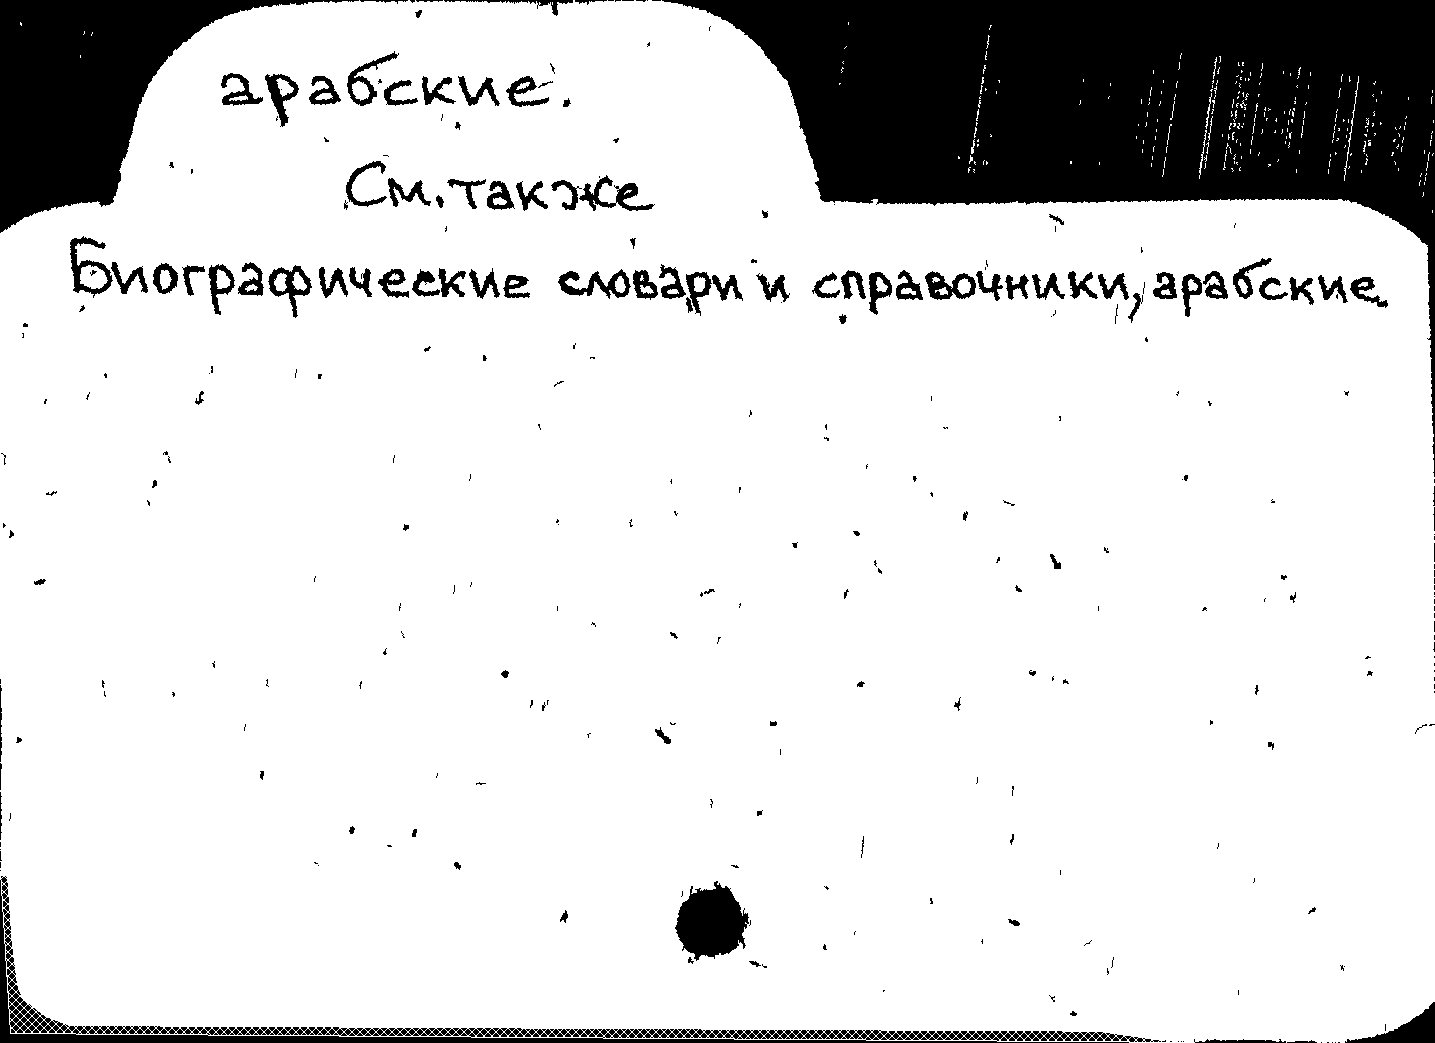 арабские.
См. также
Биографические словари и справочники, арабские.